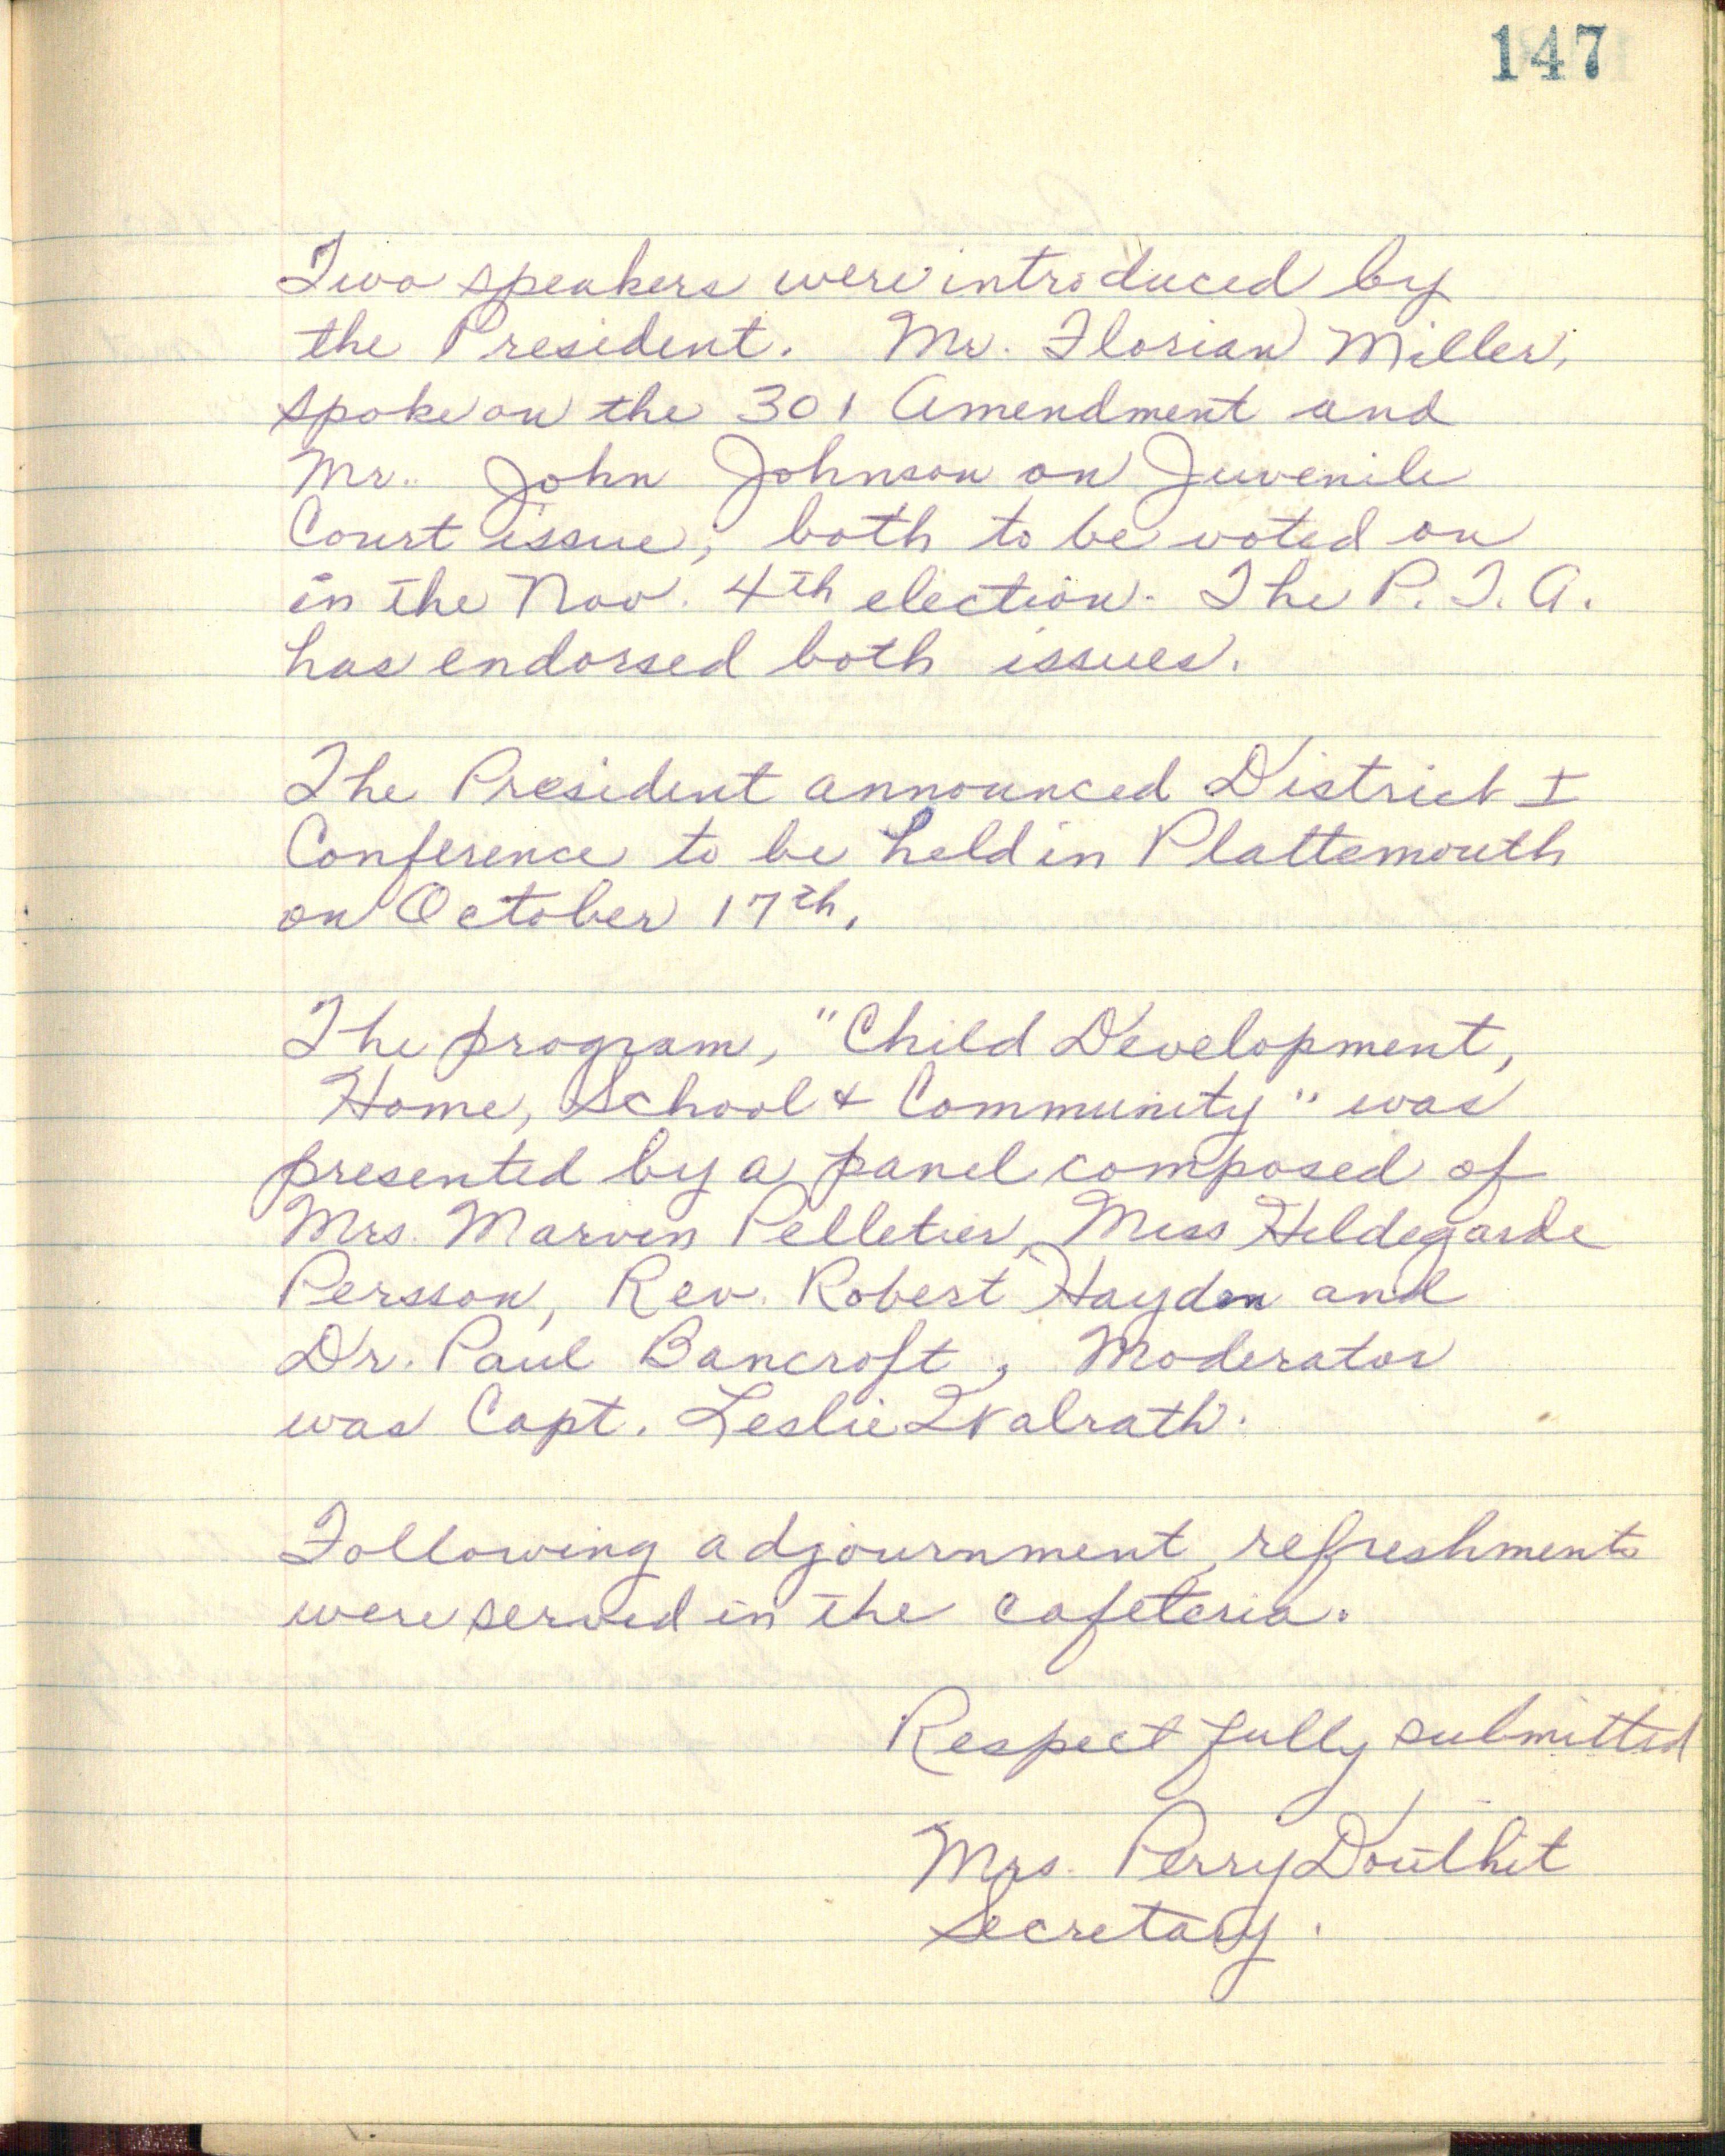 147
Two speakers were introduced by
the President. Mr. Florian Miller,
spoke on the 301 Amendment and
Mr. John Johnson on Juvenile
Court issue, both to be voted on
in the Nov. 4th election. The P.T.A.
has endorsed both issues.
The President announced District I
Conference to be held in Plattsmouth
on October 17th.
The program, "Child Development,
Home, School & Community" was
presented by a panel composed of
Mrs. Marvin Pelletier, Miss Hildegarde
Persson, Rev. Robert Hayden and
Dr. Paul Bancroft, Moderator
was Capt. Leslie Walrath.
Following adjournment, refreshments
were served in the cafeteria.
Respectfully submitted
Mrs. Perry Douthit
Secretary.